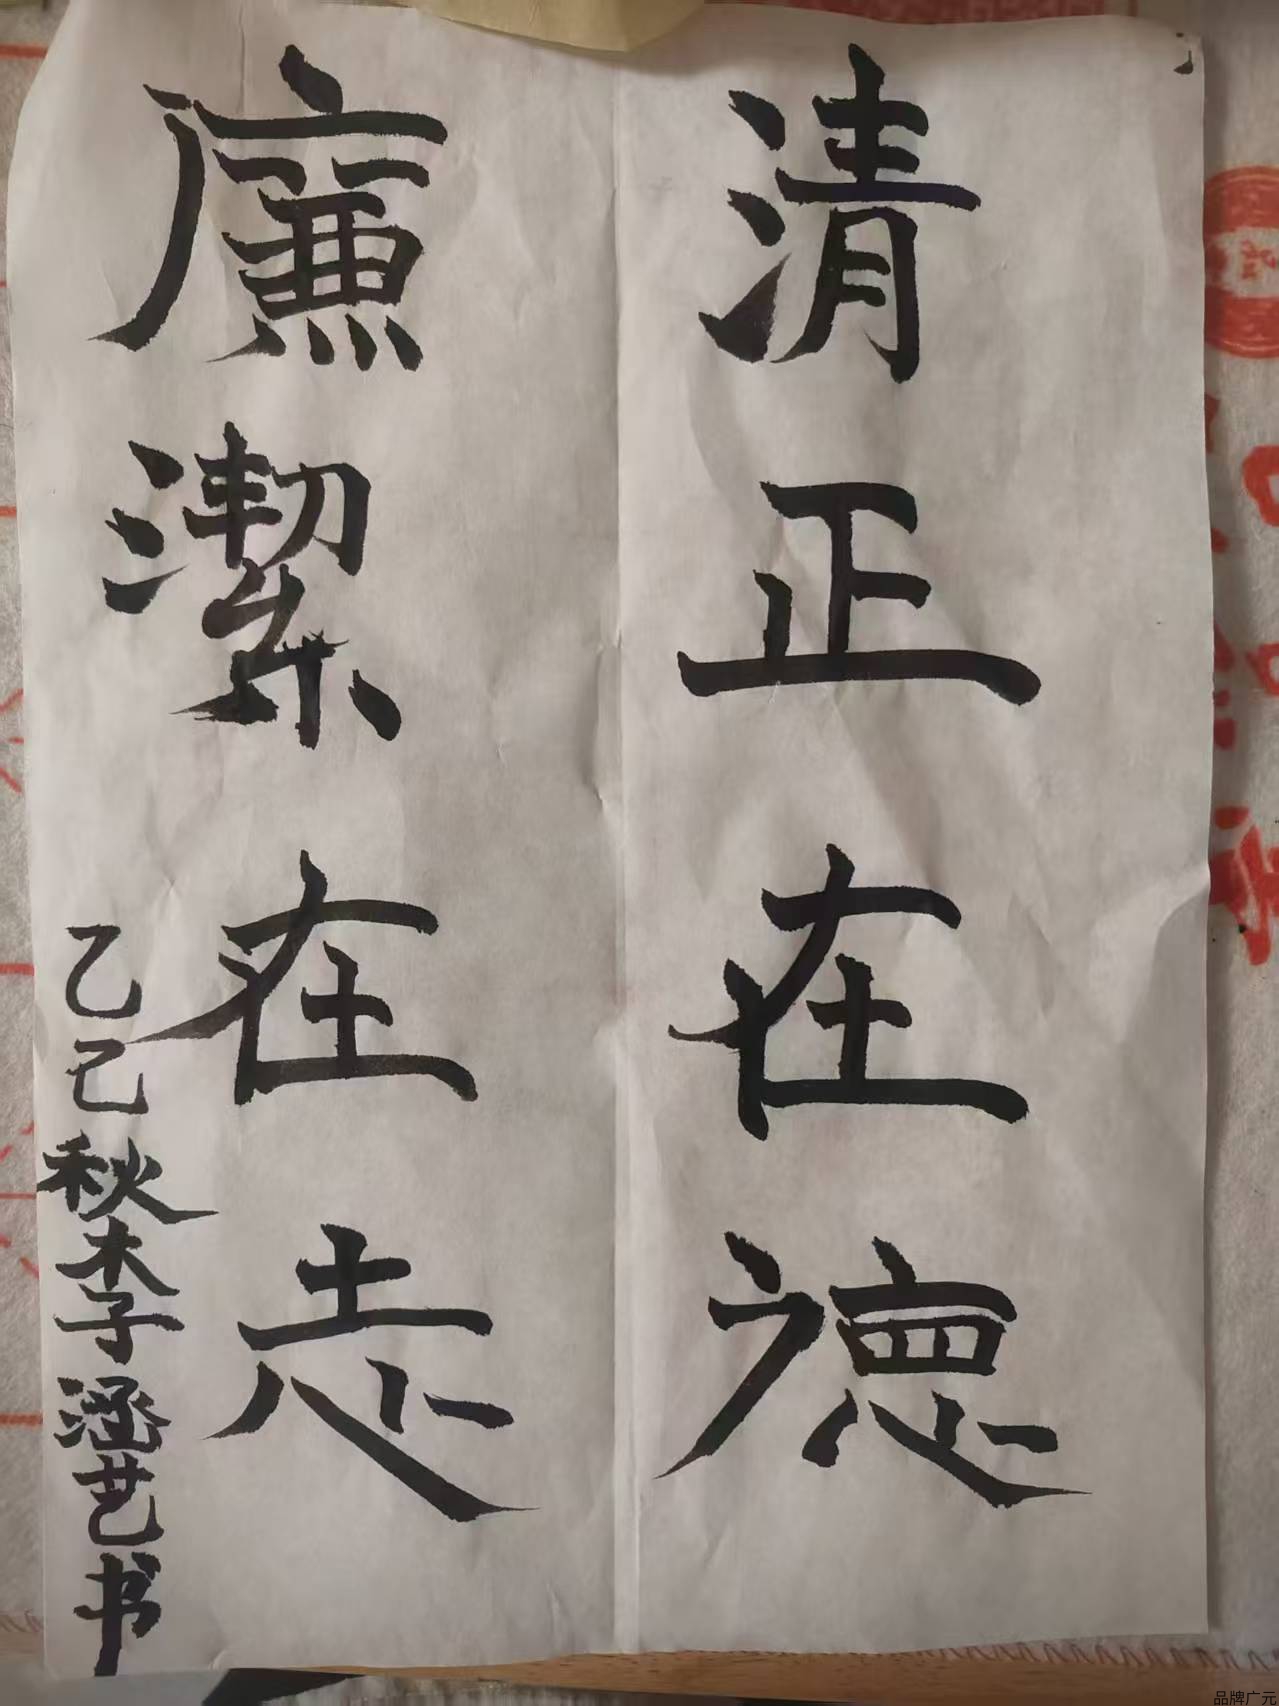 清正在德
廉潔在志
乙己秋李子涵艺书
品牌广元